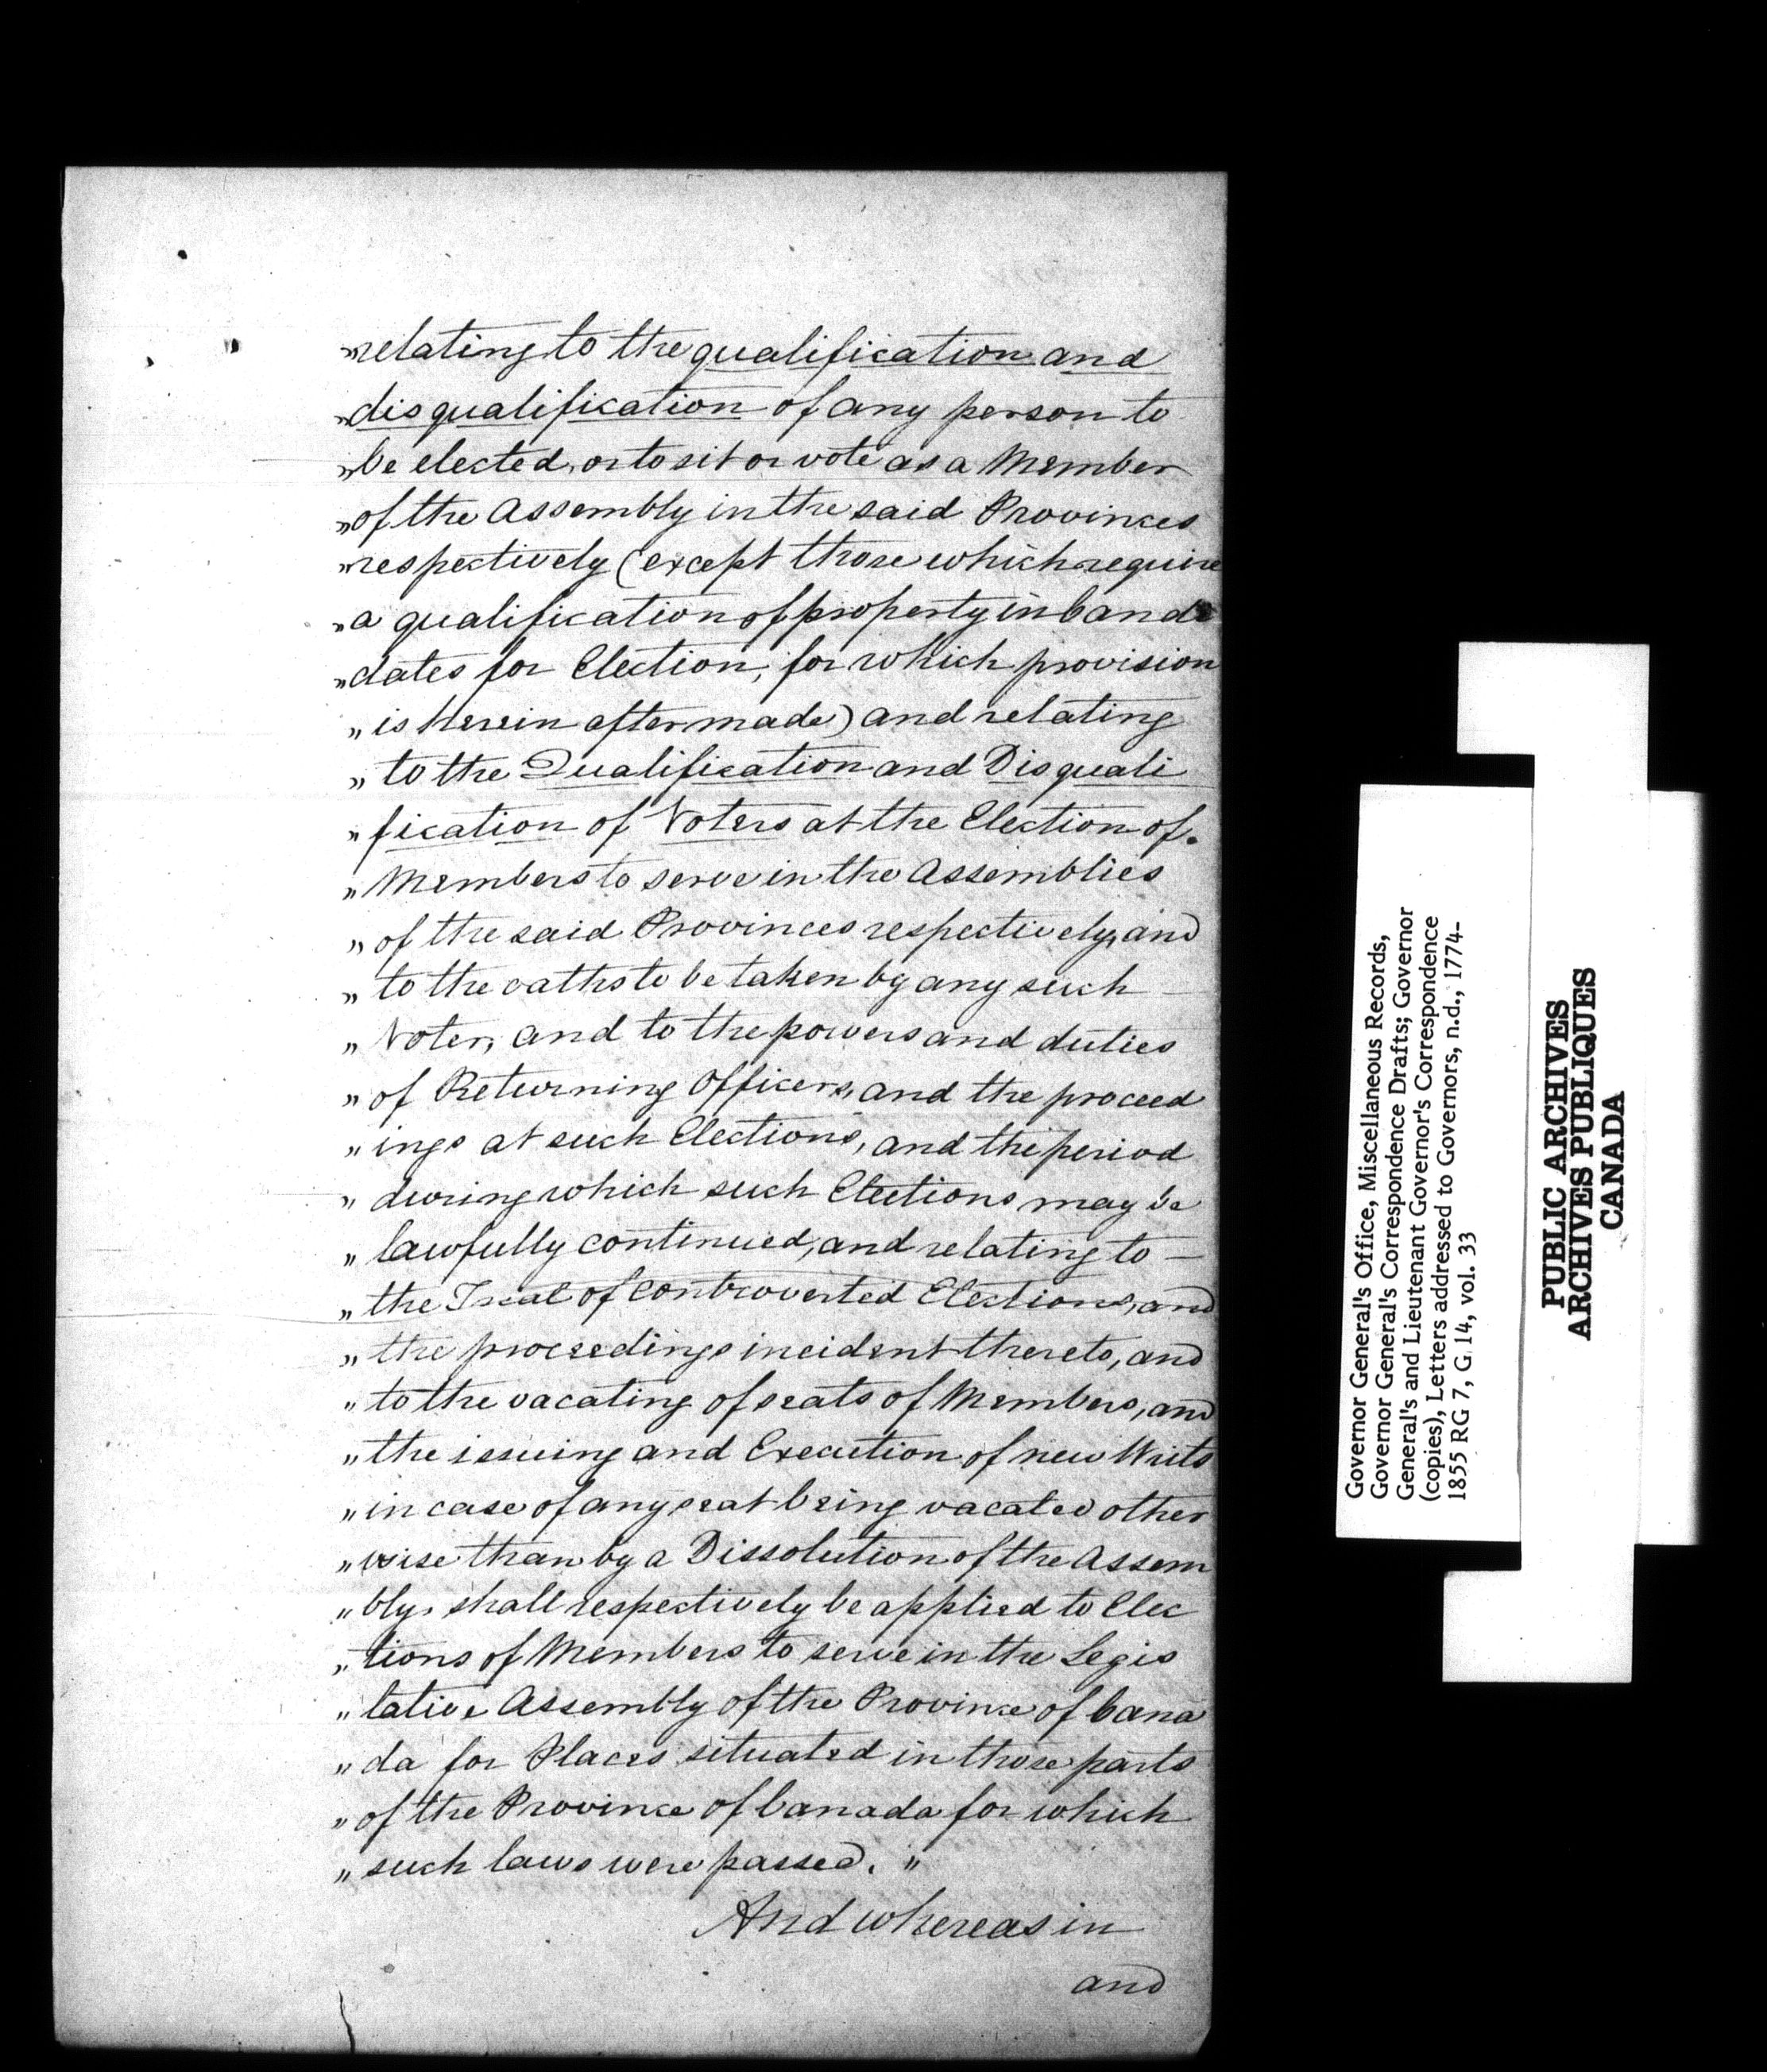 „relating to the qualification and
„disqualification of any person to
„be elected, or to sit or vote as a Member
„of the Assembly in the said Provinces
„respectively (except those which require
„a qualification of property in Candi
„dates for Election, for which provision
„is herein after made) and relating
„to the Qualification and Disquali
„fication of Voters at the Election of
„Members to serve in the Assemblies
„of the said Provinces respectively, and
„to the oaths to be taken by any such —
„Voter, and to the powers and duties
„of Returning Officers, and the proceed
„ings at such Elections, and the period
„during which such Elections may be
„lawfully continued, and relating to —
„the Trial of Controverted Elections, and
„the proceedings incident thereto, and
„to the vacating of seats of Members, and
„the issuing and Execution of new Writs
„in case of any seat being vacated other
„wise than by a Dissolution of the Assem
„bly, shall respectively be applied to Elec
„tions of Members to serve in the Legis
„lative Assembly of the Province of Cana
„da for Places situated in those parts
„of the Province of Canada for which
„such laws were passed. „
And whereas in
and
Governor General's Office, Miscellaneous Records,
Governor General's Correspondence Drafts; Governor
General's and Lieutenant Governor's Correspondence
(copies), Letters addressed to Governors, n.d., 1774-
1855 RG 7, G 14, vol. 33
PUBLIC ARCHIVES
ARCHIVES PUBLIQUES
CANADA